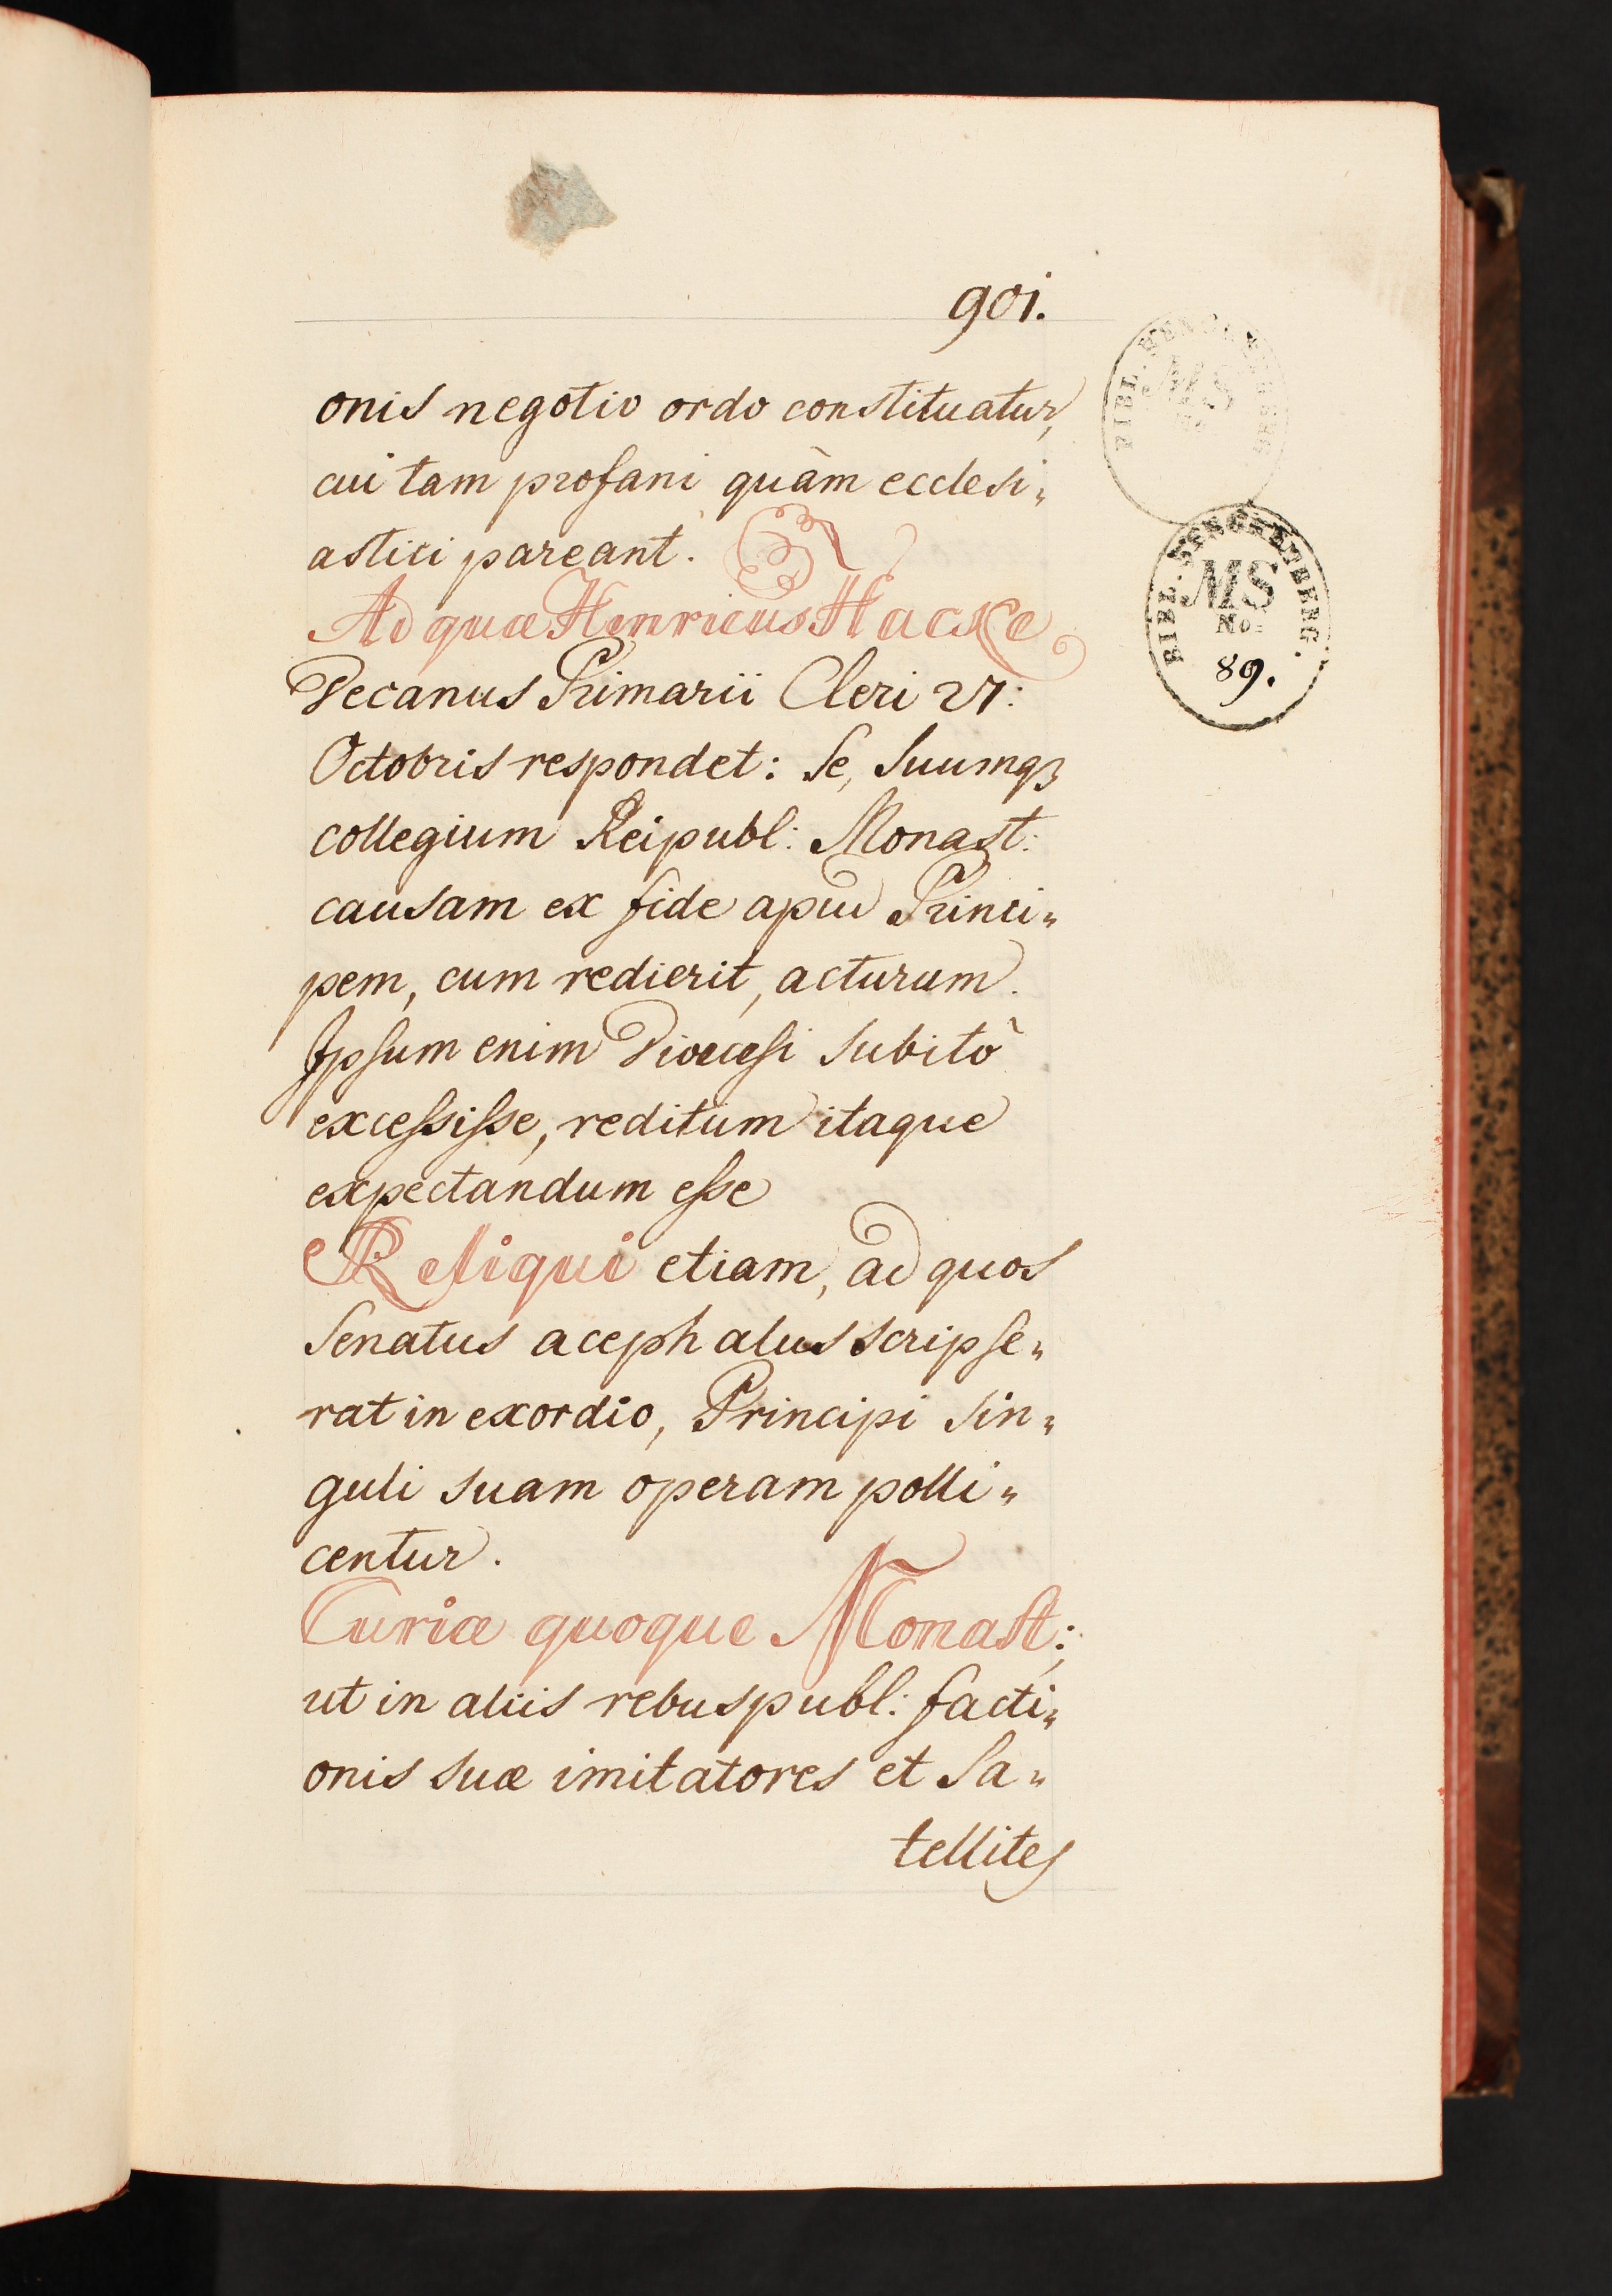 901.
onis negotio ordo constituatur,
cui tam profani quàm ecclesi„
astici pareant.
Ad quæ Henricus Hacke
Decanus Primarii Cleri 27:
Octobris respondet: Se, suumqꝫ
collegium Reipubl: Monast:
causam ex fide apud Princi„
pem, cum redierit, acturum.
Ipsum enim Dioecesi subitò
excessisse, reditum itaque
expectandum esse
Reliqui etiam, ad quos
Senatus acephalus scripse„
rat in exordio, Principi sin„
guli suam operam polli„
centur.
Curiæ quoque Monast:,
ut in aliis rebuspubl: facti„
onis suæ imitatores et Sa„
tellites
BIBL.
MS
BIBL. BENGHENBERG.
MS
No:
89.